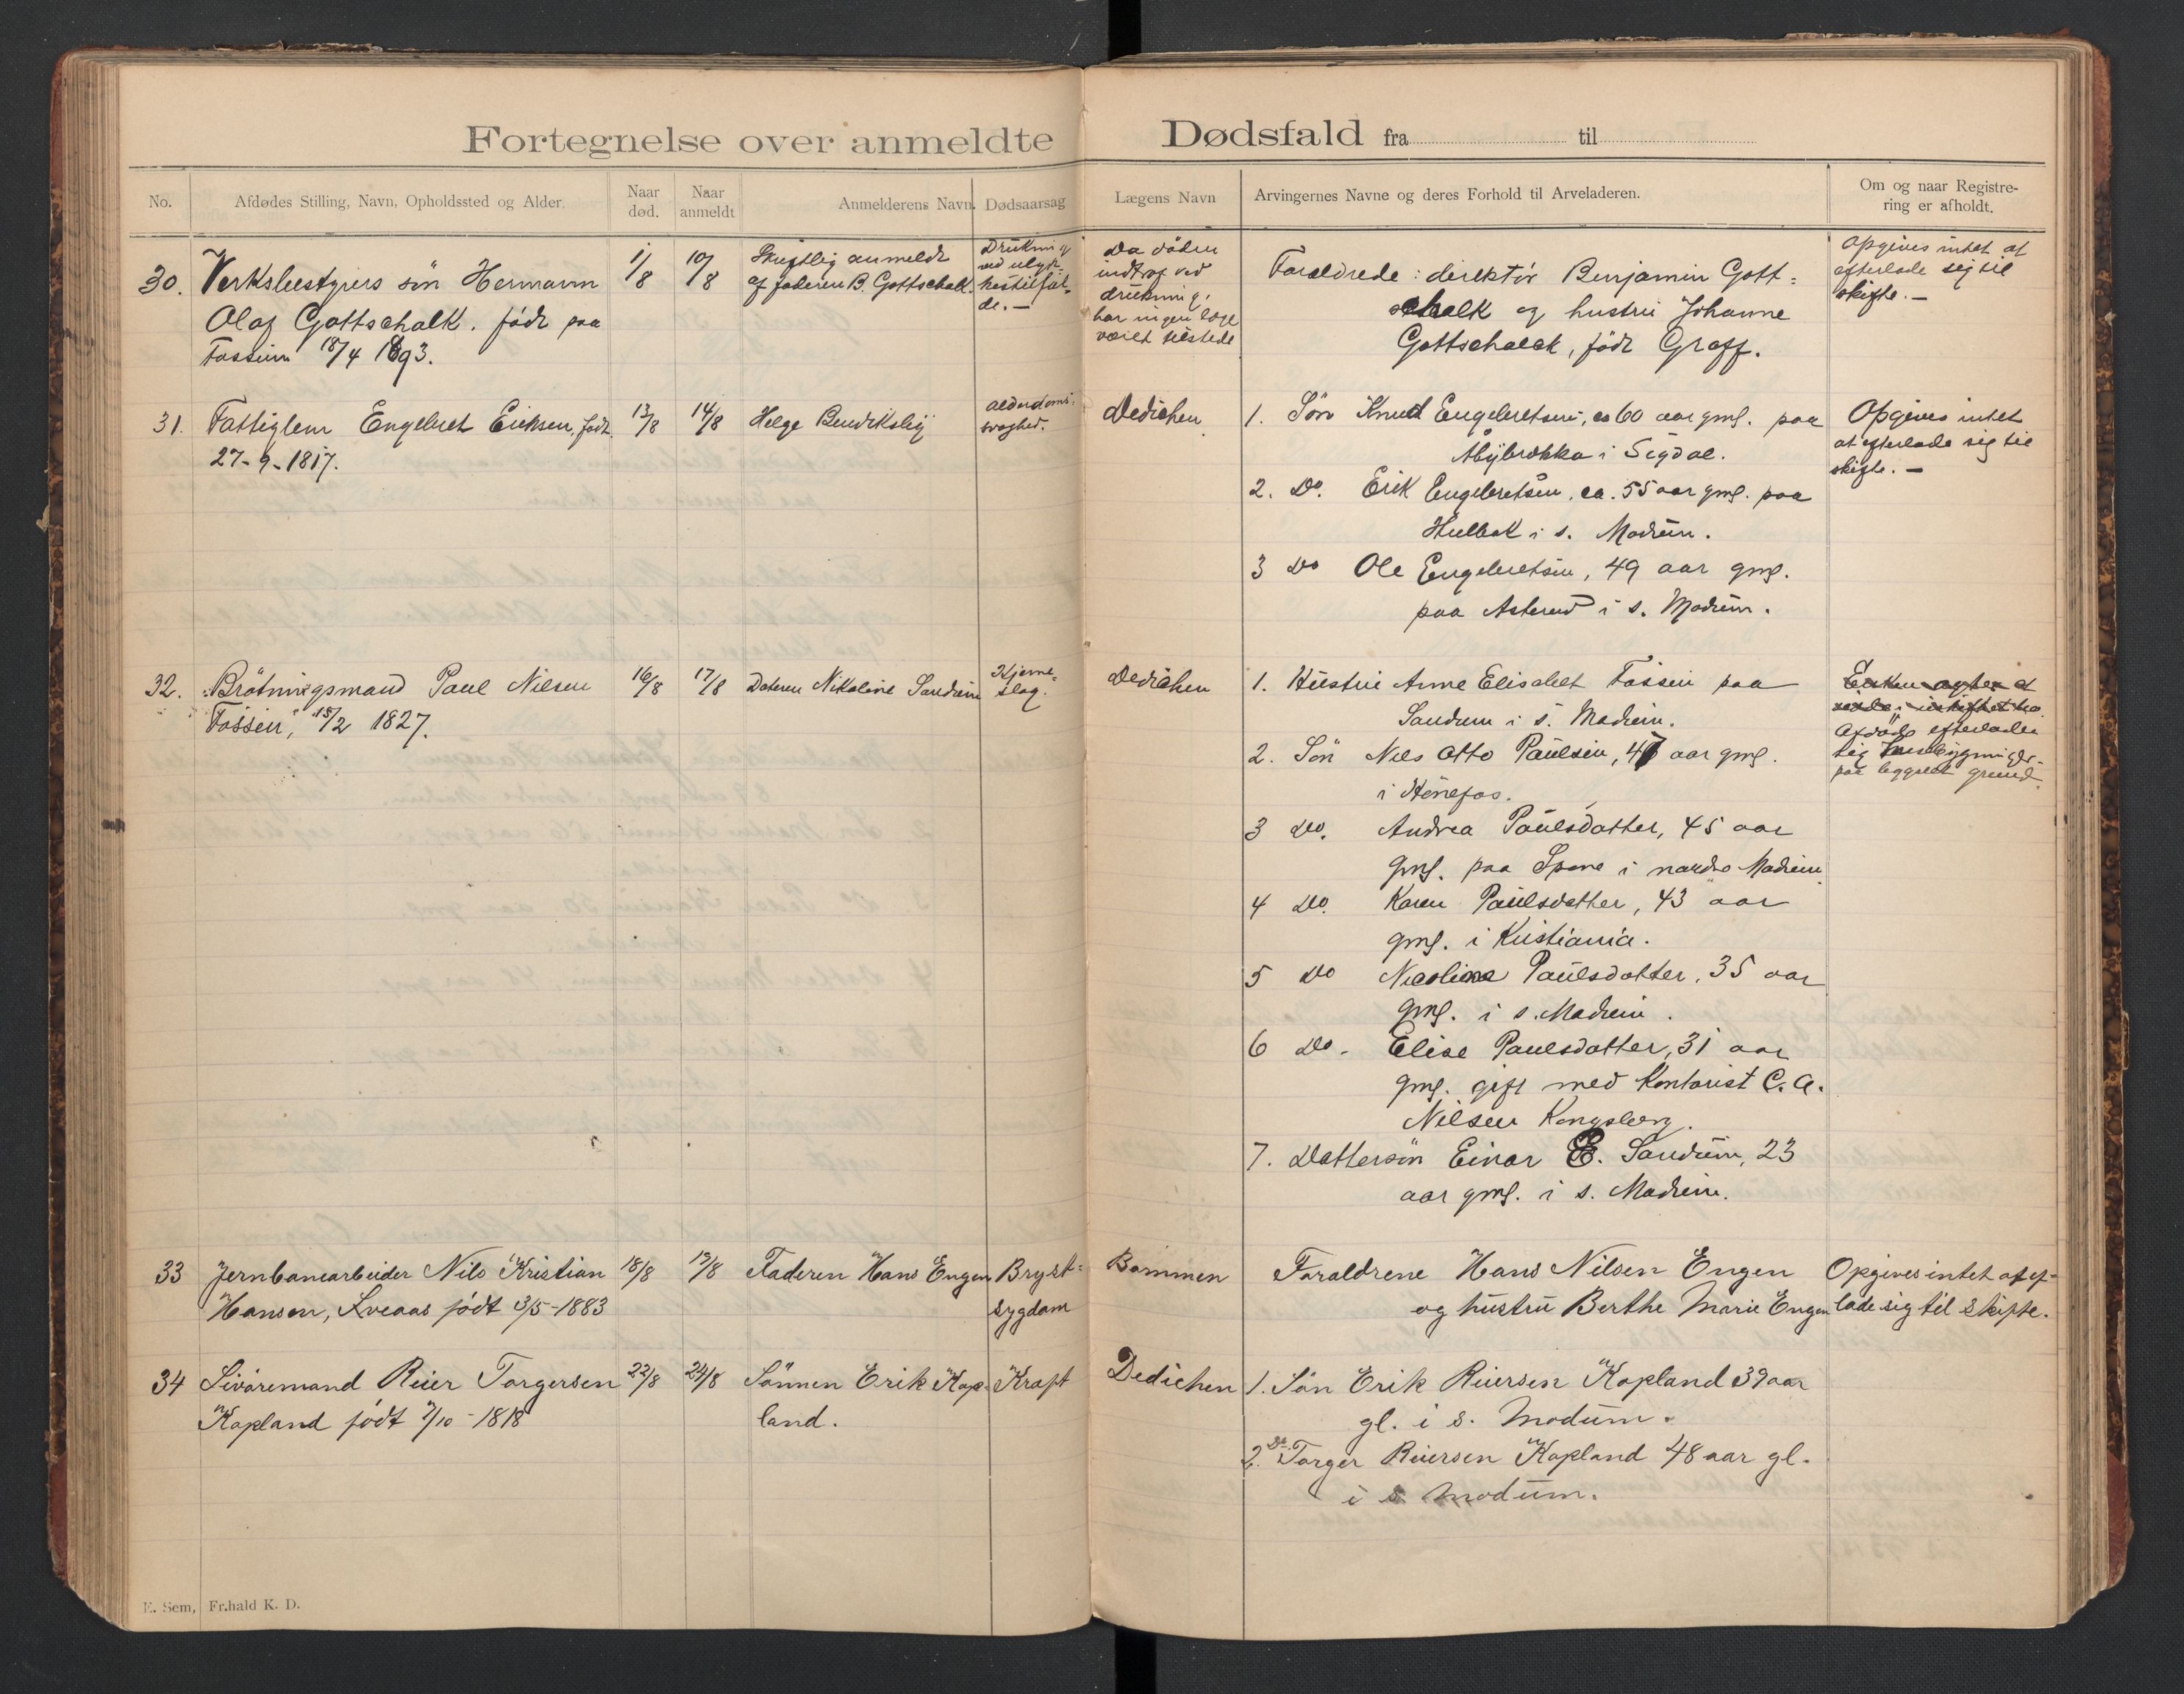 Fortegnelse over anmeldte Dødsfald fra til
No.
Afdødes Stilling, Navn, Opholdssted og Alder.
Naar død.
Naar anmeldt
Anmelderens Navn.
Dødsaarsag
Lægens Navn
Arvingernes Navne og deres Forhold til Arveladeren.
Om og naar Registre-
ring er afholdt.
30. Verksbestyrers sön Hermann
Olaf Gottschalk, födt paa
Fossum 18/4 1893.
1/8
10/8
Skriftlig anmeldt
af faderen B. Gottschalk.
Drukning
ved ulyk-
kestilfæl-
de. —
Da döden
indtraf ved
drukning,
har ingen læge
været tilstede
Forældrede: direktör Benjamin Gott-
schalk og hustru Johanne
Gottschalck, födt Graff.
Opgives intet at
efterlade sig til
skifte. —
31. Fattiglem Engebret Eriksen, födt
27-9-1817.
13/8
14/8
Helge Bendiksby
Alderdoms-
svaghed.
Dedichen
1. Sön Knud Engebretsen, ca 60 aar gml. paa
i Sigdal.
2. Do. Erik Engebretsen, ca. 55 aar gml. paa
Hulbak i s. Modum.
3 Do Ole Engebretsen, 49 aar gml.
paa Asterud i s. Modum.
Opgives intet
at efterlade sig til
skifte. —
32. Brötningsmand Paul Nilsen
Fossen, 15/2 1827.
16/8
17/8
Datteren Nikoline Sandum
Hjerne-
slag.
Dedichen
1. Hustru Anne Elisabet Fossen paa
Sandum i s. Modum.
2. Sön Nils Otto Paulsen, 47 aar gml.
i Hönefos.
3 Do. Andrea Paulsdatter, 45 aar
gml. paa Spone i nordre Modum.
4 Do. Karen Paulsdatter, 43 aar
gml. i Kristiania.
5 Do Nicoline Paulsdatter, 35 aar
gml. i s. Modum.
6 Do. Elise Paulsdatter, 31 aar
gml. gift med Kontorist C. A.
Nilsen Kongsberg.
7. Dattersön Einar B. Sandum, 23
aar gml. i s. Modum.
Enken agter at
Afdöde efterlader
sig husbygninger
paa bygslet grund.
33 Jernbanearbeider Nils Kristian
Hansen, Sveaas födt 3/5-1883
18/8
19/8
Faderen Hans Engen
Bryst-
sygdom
Bommen
Forældrene Hans Nilsen Engen
og hustru Berthe Marie Engen
Opgives intet at ef-
lade sig til skifte.
34 Livöremand Reier Torgersen
Kopland födt 7/10-1818
22/8
24/8
Sönnen Erik Kop-
land.
Kræft
Dedichen
1. Sön Erik Reiersen Kopland 39 aar
gl. i s. Modum.
2. Do. Torger Reiersen Kopland 48 aar gl.
i s. Modum.
E. Sem, Fr.hald K. D.